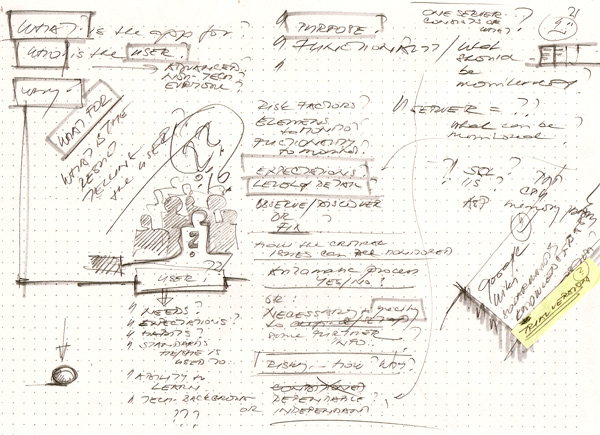 WHAT? is the app for?
WHO is the USER?
ADVANCED
NON-TECH?
EVERYONE?
WHY
WHAT FOR
WHAT IS THE
TELLING
the USER?
USER
NEEDS?
EXPECTATIONS?
HABITS?
STANDARDS
he/she is
USED TO...
ABILITY to
LEARN
TECH. BACKGROUND
???
PURPOSE?
FUNCTIONALITY?
RISK FACTORS?
ELEMENTS
to MONITOR?
FUNCTIONALITY
to MONITOR?
EXPECTATIONS?
LEVEL of DETAIL?
OBSERVE/DISCOVER
OR ?
FIX
how the CRITICAL
ISSUES can be MONITORED
Automatic process
YES/NO?
OR:
NECESSARY to specify
some FURTHER
INFO..
RISKY - HOW? WHY?
DEPENDABLE?
OR INDEPENDANT
ONE SERVER ?
CONSISTS OF
WHAT?
What
should
be
monitored?
SERVER = ??
What can be
monitored
? SQL ?
IIS ?
ASP
CPU
memory
google
wiki
TRIAL VERSIONS?